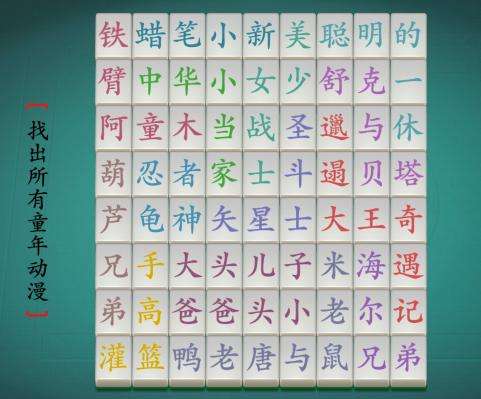 【找出所有童年动漫】
铁蜡笔小新美聪明的
臂中华小女少舒克一
阿童木当战圣邋与休
葫忍者家士斗遢贝塔
芦龟神矢星士大王奇
兄手大头儿子米海遇
弟高爸爸头小老尔记
灌篮鸭老唐与鼠兄弟